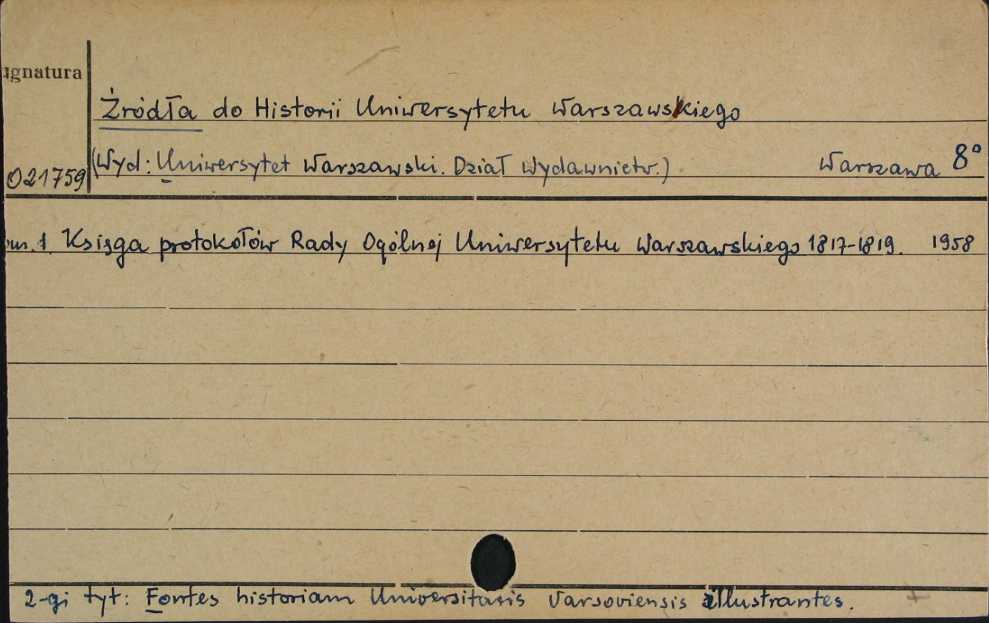 ignatura
Źródła do Historii Uniwersytetu Warszawskiego
(Wyd: Uniwersytet Warszawski. Dział Wydawnictw.) Warszawa 8°
021759
om. 1. Księga protokołów Rady Ogólnej Uniwersytetu Warszawskiego 1817-1819. 1958
2-gi tyt: Fontes historiam Universitatis Varsoviensis illustrantes.